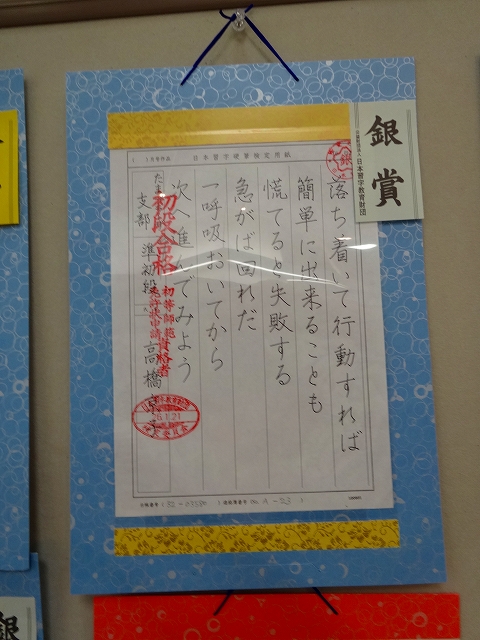 銀賞
日本習字教育財団
日本習字硬筆検定用紙
落ち着いて行動すれば
簡単に出来ることも
慌てると失敗する
急がば回れだ
一呼吸おいてから
次へ進んでみよう
初段合格
初等師範資格者
支部
準初段
高橋
銀